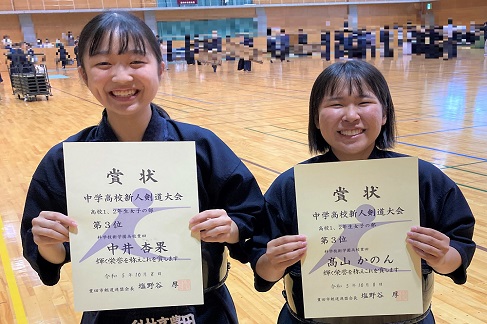 賞状
中学高校新人剣道大会
高校1、2年生女子の部
第3位
中井 杏果
輝く栄誉を称えこれを賞します
令和5年10月8日
塩野谷 厚
賞状
中学高校新人剣道大会
高校1、2年生女子の部
第3位
髙山 かのん
輝く栄誉を称えこれを賞します
令和5年10月8日
塩野谷 厚